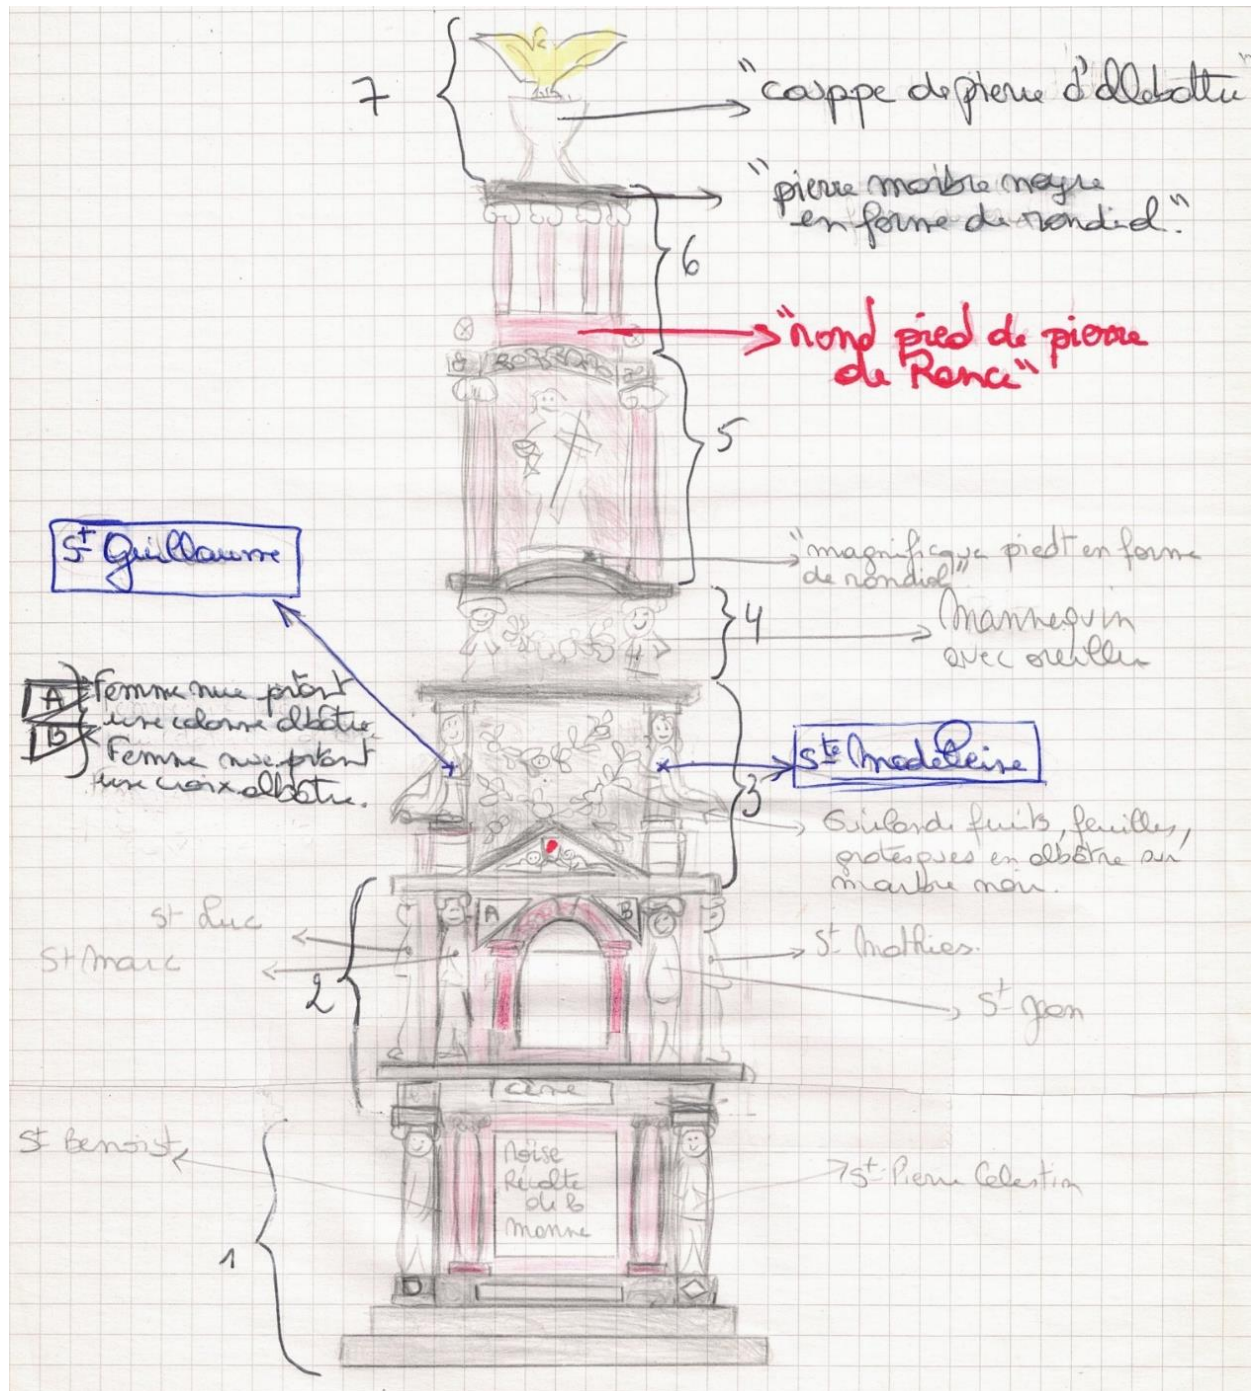 7
"couppe de pierre d'Allebattre"
"pierre marbre noyre
en forme de rondial."
6
"rond pied de pierre
de Rance"
5
"magnificque piedt en forme
de rondial"
St Guillaume
4
Mannequin
avec oreiller
A Femme nue prtant
une colonne albâtre
B Femme nue prtant
une croix albâtre.
Ste Madeleine
3
Guirlande fruits, feuilles,
grotesques en albâtre sur
marbre noir.
St Luc
A
B
St Mathieu.
St Marc
2
St Jean
Cène
St Benoist
Moïse
Récolte
de la
manne
St Pierre Célestin
1